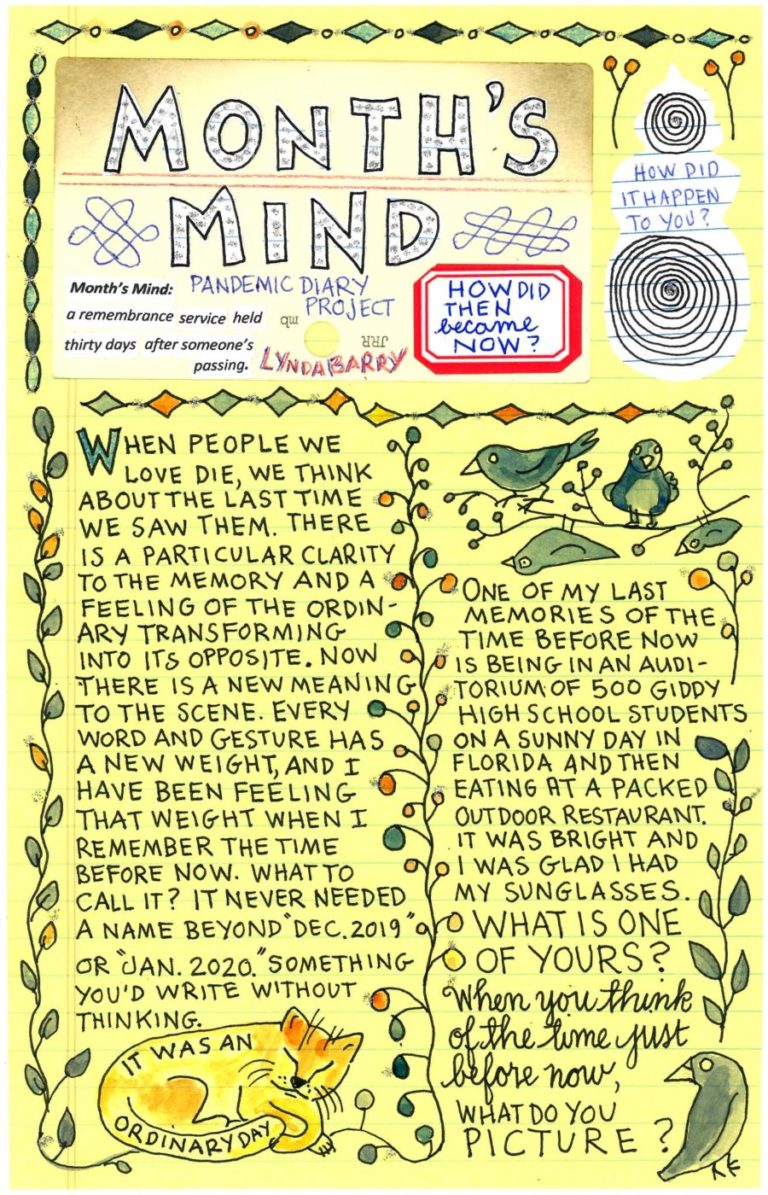 MONTH'S
MIND
HOW DID
IT HAPPEN
TO YOU?
Month's Mind:
a remembrance service held
thirty days after someone's
passing.
PANDEMIC DIARY
PROJECT
mb
JRR
LYNDA BARRY
HOW DID
THEN
became
NOW?
WHEN PEOPLE WE
LOVE DIE, WE THINK
ABOUT THE LAST TIME
WE SAW THEM. THERE
IS A PARTICULAR CLARITY
TO THE MEMORY AND A
FEELING OF THE ORDIN-
ARY TRANSFORMING
INTO ITS OPPOSITE. NOW
THERE IS A NEW MEANING
TO THE SCENE. EVERY
WORD AND GESTURE HAS
A NEW WEIGHT, AND I
HAVE BEEN FEELING
THAT WEIGHT WHEN I
REMEMBER THE TIME
BEFORE NOW. WHAT TO
CALL IT? IT NEVER NEEDED
A NAME BEYOND "DEC. 2019"
OR "JAN. 2020." SOMETHING
YOU'D WRITE WITHOUT
THINKING.
IT WAS AN
ORDINARY DAY
ONE OF MY LAST
MEMORIES OF THE
TIME BEFORE NOW
IS BEING IN AN AUDI-
TORIUM OF 500 GIDDY
HIGH SCHOOL STUDENTS
ON A SUNNY DAY IN
FLORIDA AND THEN
EATING AT A PACKED
OUTDOOR RESTAURANT.
IT WAS BRIGHT AND
I WAS GLAD I HAD
MY SUNGLASSES.
WHAT IS ONE
OF YOURS?
When you think
of the time just
before now,
WHAT DO YOU
PICTURE?